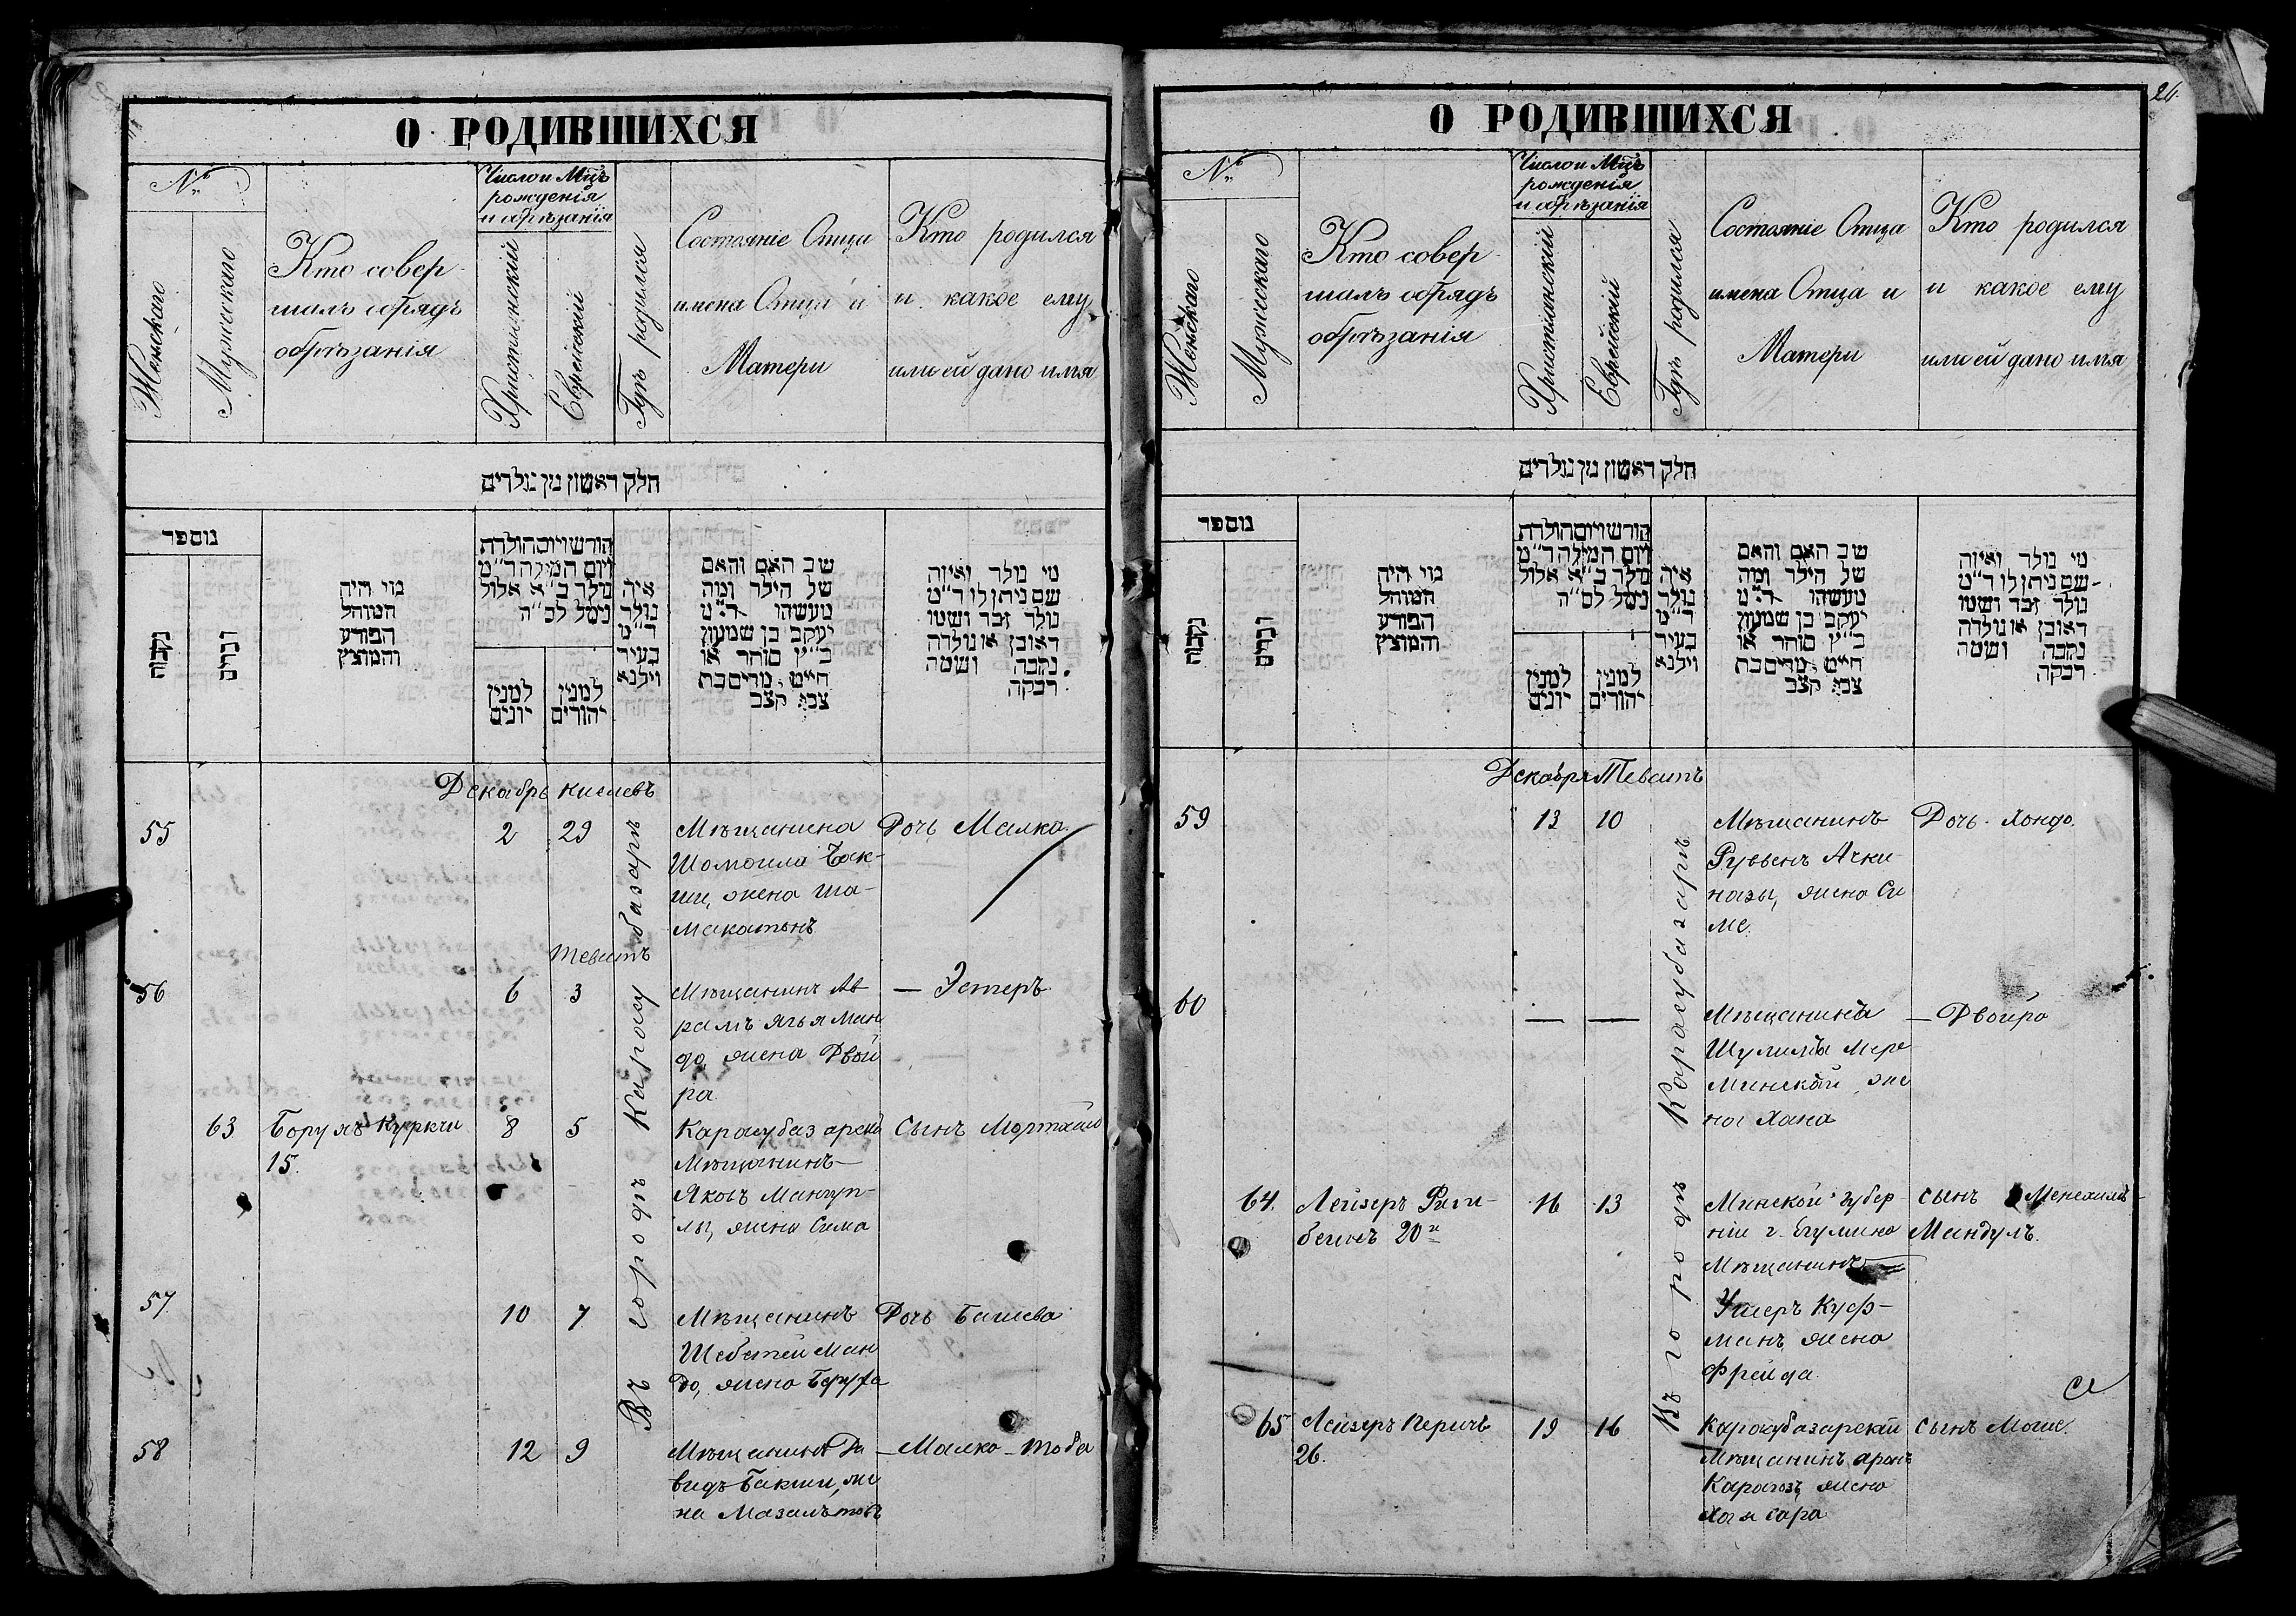 О РОДИВШИХСЯ
№
Женскаго
Мужескаго
Кто совер
шалъ обрядъ
обрѣзанія
Число и Мцъ
рожденія
и обрѣзанія
Христіянскій
Еврейскій
Гдѣ родился
Состояніе Отца
имена Отца и
Матери
Кто родился
и какое ему
или ей дано имя
חלק ראשון מן נולדים
מוספר
נקבות
זכרים
מי היה
המוהל
הפורע
והמוצץ
חודש ויום הולדת
ויום המילה ד"מ
נולד ב"א אלול
נימל לס"ה
למנין
יונים
למנין
יהודים
איה
נולד
ד"מ
בעיר
וילנא
שב האם והאם
של הילד ומה
מעשהו ד"מ
יעקב בן שמעון
כ"ץ סוחר או
חייט מרים בת
צבי קצב
מי נולד ואיזה
שם ניתן לו ד"מ
נולד זכר ושמו
ראובן או נולדה
נקבה ושמה
רבקה
Декабрь Кислевъ
Въ городѣ Карасубазарѣ
55
2 29
Мѣщанина
Шомоила Бак-
ши, жена Ша-
Макатонъ
Дочь Малка
Теветъ
56
6 3
Мѣщанинъ Ав
рамъ Яъя Ман
до, жена Двой
ра
— Эстеръ
63
Борухъ Куркчи
15.
8 5
Карасубазарскій
Мѣщанинъ
Яковъ Мангуп-
лы, жена Сима
Сынъ Мортхай
57
10 7
Мѣщанинъ
Шебетей Ман
до, жена Беруха
Дочь Башева
58
12 9
Мѣщанинъ Да
видъ Бакши, же
на Мазалътовъ
— Малко-Това
26.
О РОДИВШИХСЯ
№
Женскаго
Мужескаго
Кто совер
шалъ обрядъ
обрѣзанія
Число и Мцъ
рожденія
и обрѣзанія
Христіянскій
Еврейскій
Гдѣ родился
Состояніе Отца
имена Отца и
Матери
Кто родился
и какое ему
или ей дано имя
חלק ראשון מן נולדים
מוספר
נקבות
זכרים
מי היה
המוהל
הפורע
והמוצץ
חודש ויום הולדת
ויום המילה ד"מ
נולד ב"א אלול
נימל לס"ה
למנין
יונים
למנין
יהודים
איה
נולד
ד"מ
בעיר
וילנא
שב האם והאם
של הילד ומה
מעשהו ד"מ
יעקב בן שמעון
כ"ץ סוחר או
חייט מרים בת
צבי קצב
מי נולד ואיזה
שם ניתן לו ד"מ
נולד זכר ושמו
ראובן או נולדה
נקבה ושמה
רבקה
Декабрь Теветъ
Въ городѣ Карасубазарѣ
59
13 10
Мѣщанинъ
Рувенъ Ачки-
назы, жена Си
ме.
Дочь Хондо.
60
— —
Мѣщанина
Шулима Мере
Минской, же
на Хана
— Двойро
64.
Лейзеръ
20
16 13
Минской губер
ніи г. Егумино
Мѣщанинъ
Ушеръ Куф-
манъ, жена
Фрейда.
сынъ Менехимъ-
Мандулъ.
65
Лейзеръ Перичъ
26.
19 16
Карасубазарскій
Мѣщанинъ Аронъ
Карагозъ жена
Хая Сара
сынъ Моше.